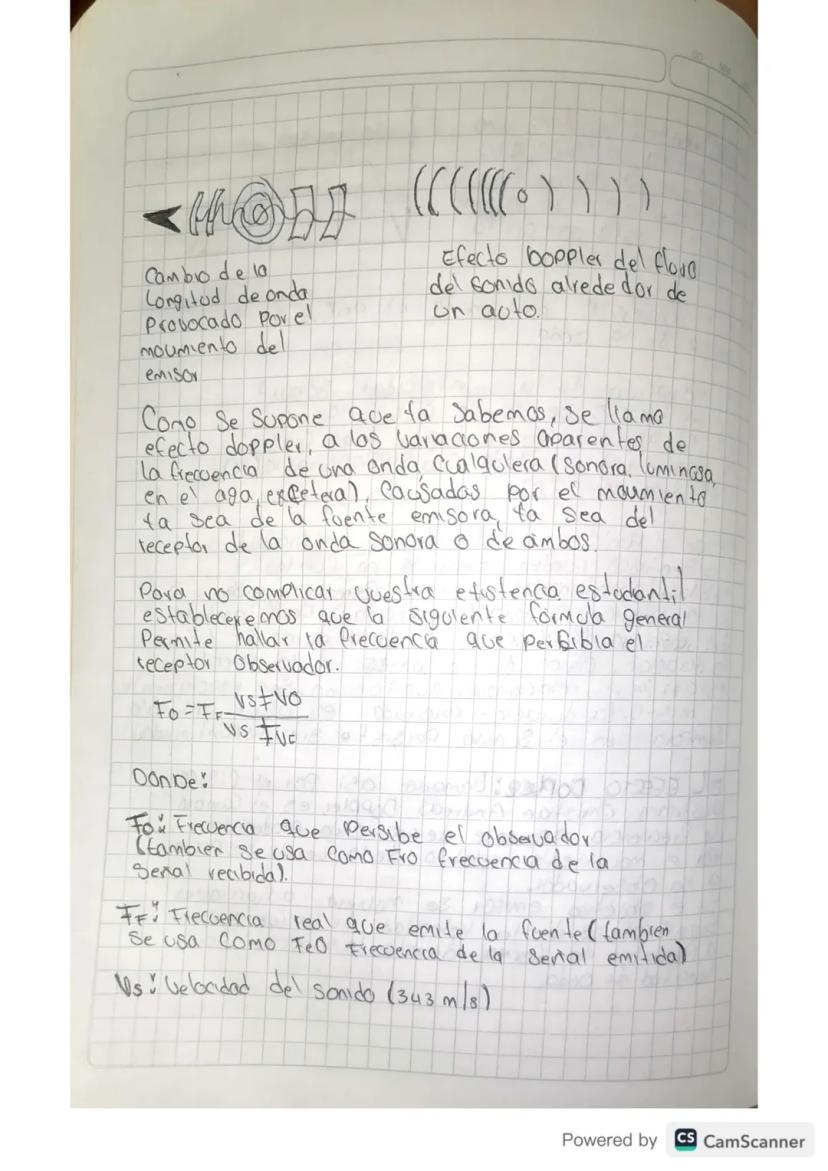 Cambio de la
Longitud de onda
Provocado Por el
movimiento del
emisor
Efecto Doppler del flujo
del sonido alrededor de
un auto.
Como Se Supone que ya Sabemos, Se llama
efecto doppler, a las variaciones aparentes de
la frecuencia de una onda cualquiera (sonora, luminosa,
en el aga, excetera), causadas por el movimiento
ya sea de la fuente emisora, ya sea del
receptor de la onda sonora o de ambos.
Para no complicar vuestra existencia estudantil
estableceremos que la siguiente formula general
Permite hallar la frecuencia que persibia el
receptor observador.
Fo = FF VS ± VO
VS ∓ VF
DONDe:
Fo: Frecuencia que Persibe el observador
(tambien se usa como Fro frecuencia de la
Señal recibida).
FF: Frecuencia real que emite la fuente (tambien
Se usa como FeO Frecuencia de la Señal emitida)
Vs: Velocidad del sonido (343 m/s)
Powered by CS CamScanner